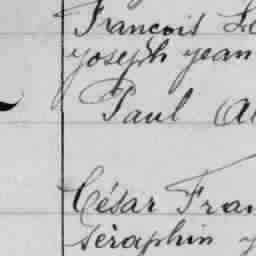 François Le
joseph jean
Paul (Al
César Fran
séraphin j